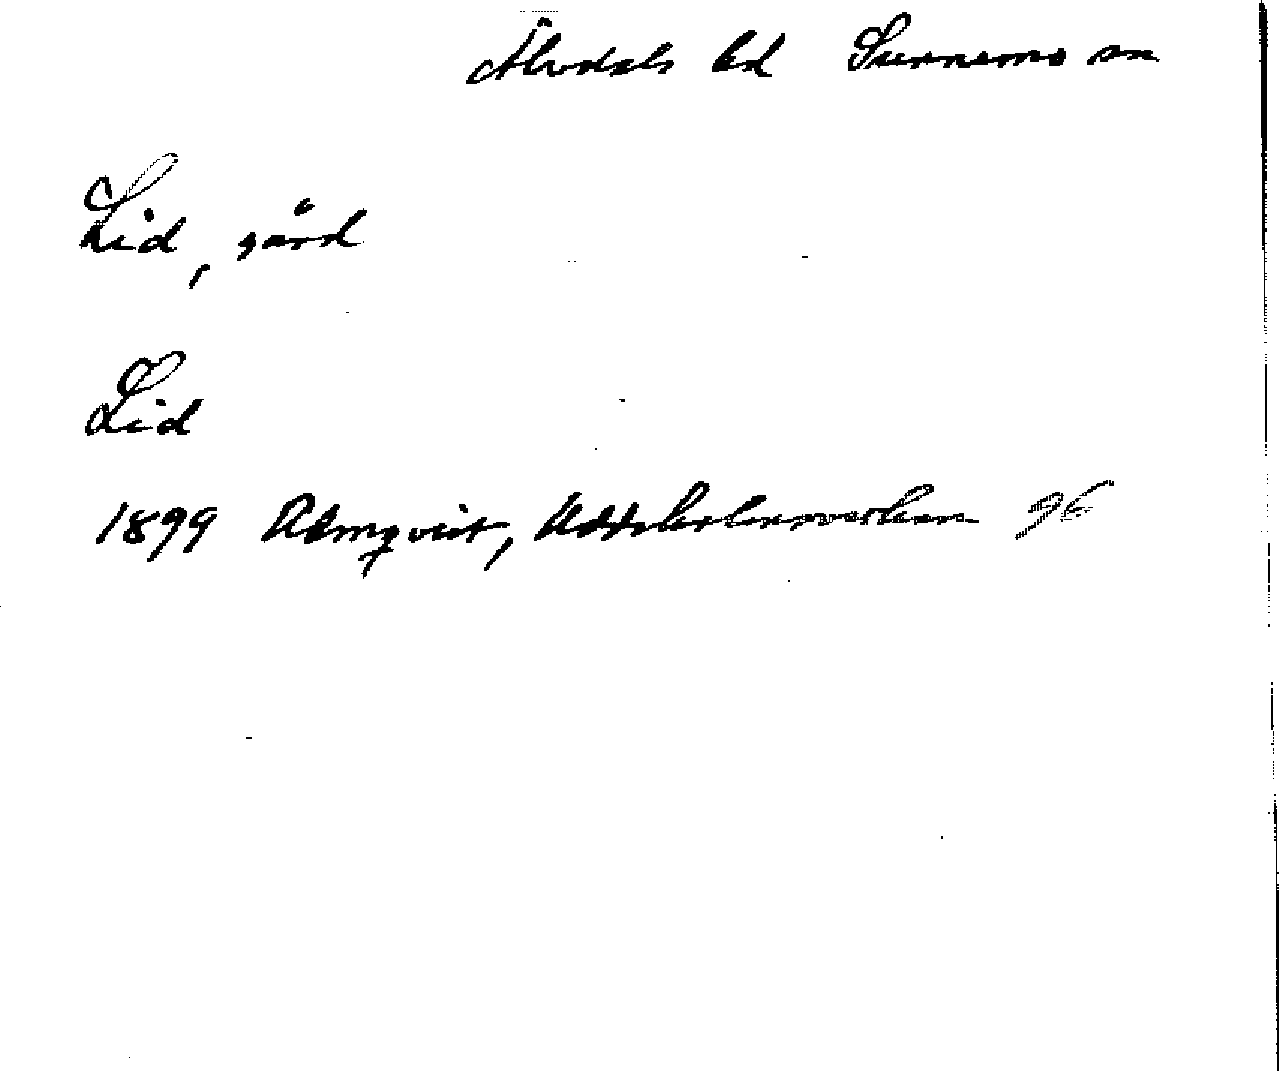 Älvdals hd Sunnemo sn
Lid, gård
Lid
1899 Almqvist, Uddeholmsverken 96